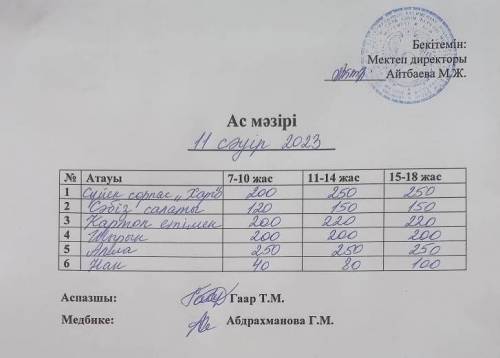 Бекітемін:
Мектеп директоры
Айтбаева М.Ж.
Ас мәзірі
11 сәуір 2023
№ Атауы 7-10 жас 11-14 жас 15-18 жас
1 Сүйек сорпас „Харчо" 200 250 250
2 Сәбіз салаты 120 150 150
3 Картоп етпімен 200 220 220
4 Шырын 200 200 200
5 Алма 250 250 250
6 Нан 40 80 100
Аспазшы: Гаар Т.М.
Медбике: Абдрахманова Г.М.